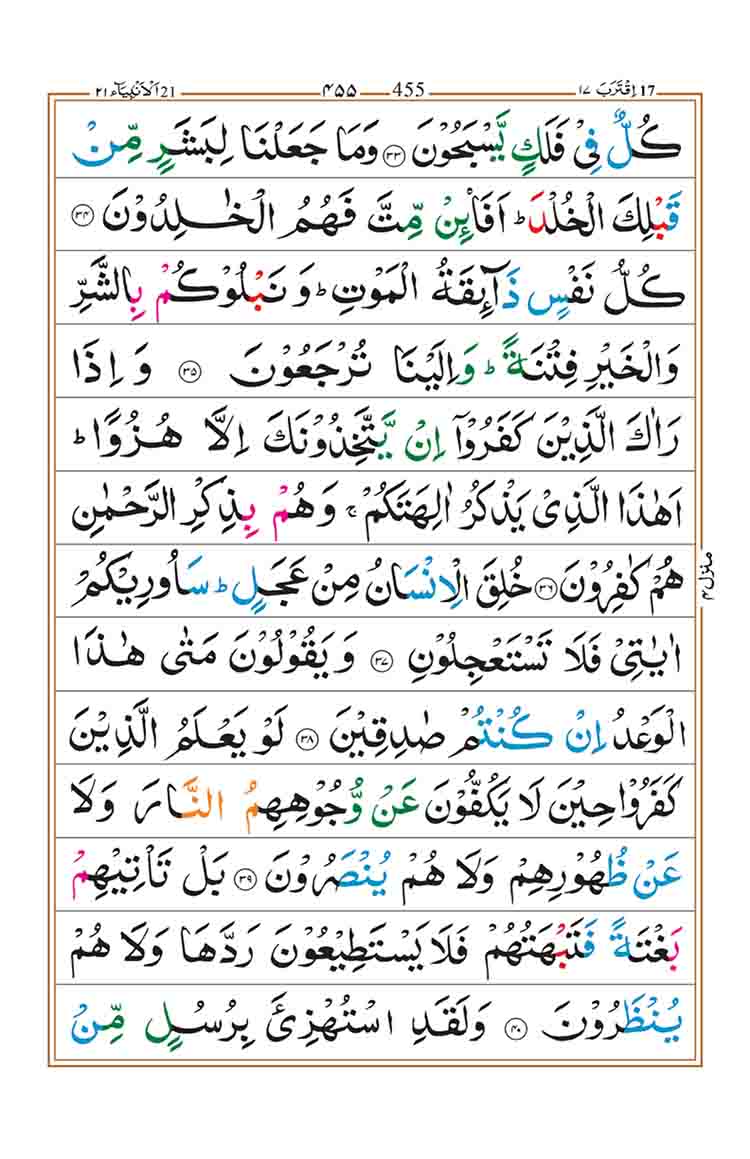 اَلْاَنْۢبِيَآء ٢١ 21 ۴۵۵ 455 اِقْتَرَبَ ١٧ 17
كُلٌّ فِیْ فَلَكٍ یَّسْبَحُوْنَ ﴿۳۳﴾ وَمَا جَعَلْنَا لِبَشَرٍ مِّنْ
قَبْلِكَ الْخُلْدَ ؕ اَفَا۠ئِنْ مِّتَّ فَهُمُ الْخٰلِدُوْنَ ﴿۳۴﴾
كُلُّ نَفْسٍ ذَآىِٕقَةُ الْمَوْتِ ؕ وَ نَبْلُوْكُمْ بِالشَّرِّ
وَالْخَیْرِ فِتْنَةً ؕ وَاِلَیْنَا تُرْجَعُوْنَ ﴿۳۵﴾ وَ اِذَا
رَاٰكَ الَّذِیْنَ كَفَرُوْۤا اِنْ یَّتَّخِذُوْنَكَ اِلَّا هُزُوًا ؕ
اَهٰذَا الَّذِیْ یَذْكُرُ اٰلِهَتَكُمْ ۚ وَهُمْ بِذِكْرِ الرَّحْمٰنِ
هُمْ كٰفِرُوْنَ ﴿۳۶﴾ خُلِقَ الْاِنْسَانُ مِنْ عَجَلٍ ؕ سَاُورِیْكُمْ
اٰیٰتِیْ فَلَا تَسْتَعْجِلُوْنِ ﴿۳۷﴾ وَ یَقُوْلُوْنَ مَتٰی هٰذَا
الْوَعْدُ اِنْ كُنْتُمْ صٰدِقِیْنَ ﴿۳۸﴾ لَوْ یَعْلَمُ الَّذِیْنَ
كَفَرُوْا حِیْنَ لَا یَكُفُّوْنَ عَنْ وُّجُوْهِهِمُ النَّارَ وَلَا
عَنْ ظُهُوْرِهِمْ وَلَا هُمْ یُنْصَرُوْنَ ﴿۳۹﴾ بَلْ تَاْتِیْهِمْ
بَغْتَةً فَتَبْهَتُهُمْ فَلَا یَسْتَطِیْعُوْنَ رَدَّهَا وَلَا هُمْ
یُنْظَرُوْنَ ﴿۴۰﴾ وَلَقَدِ اسْتُهْزِئَ بِرُسُلٍ مِّنْ
منزل ۴